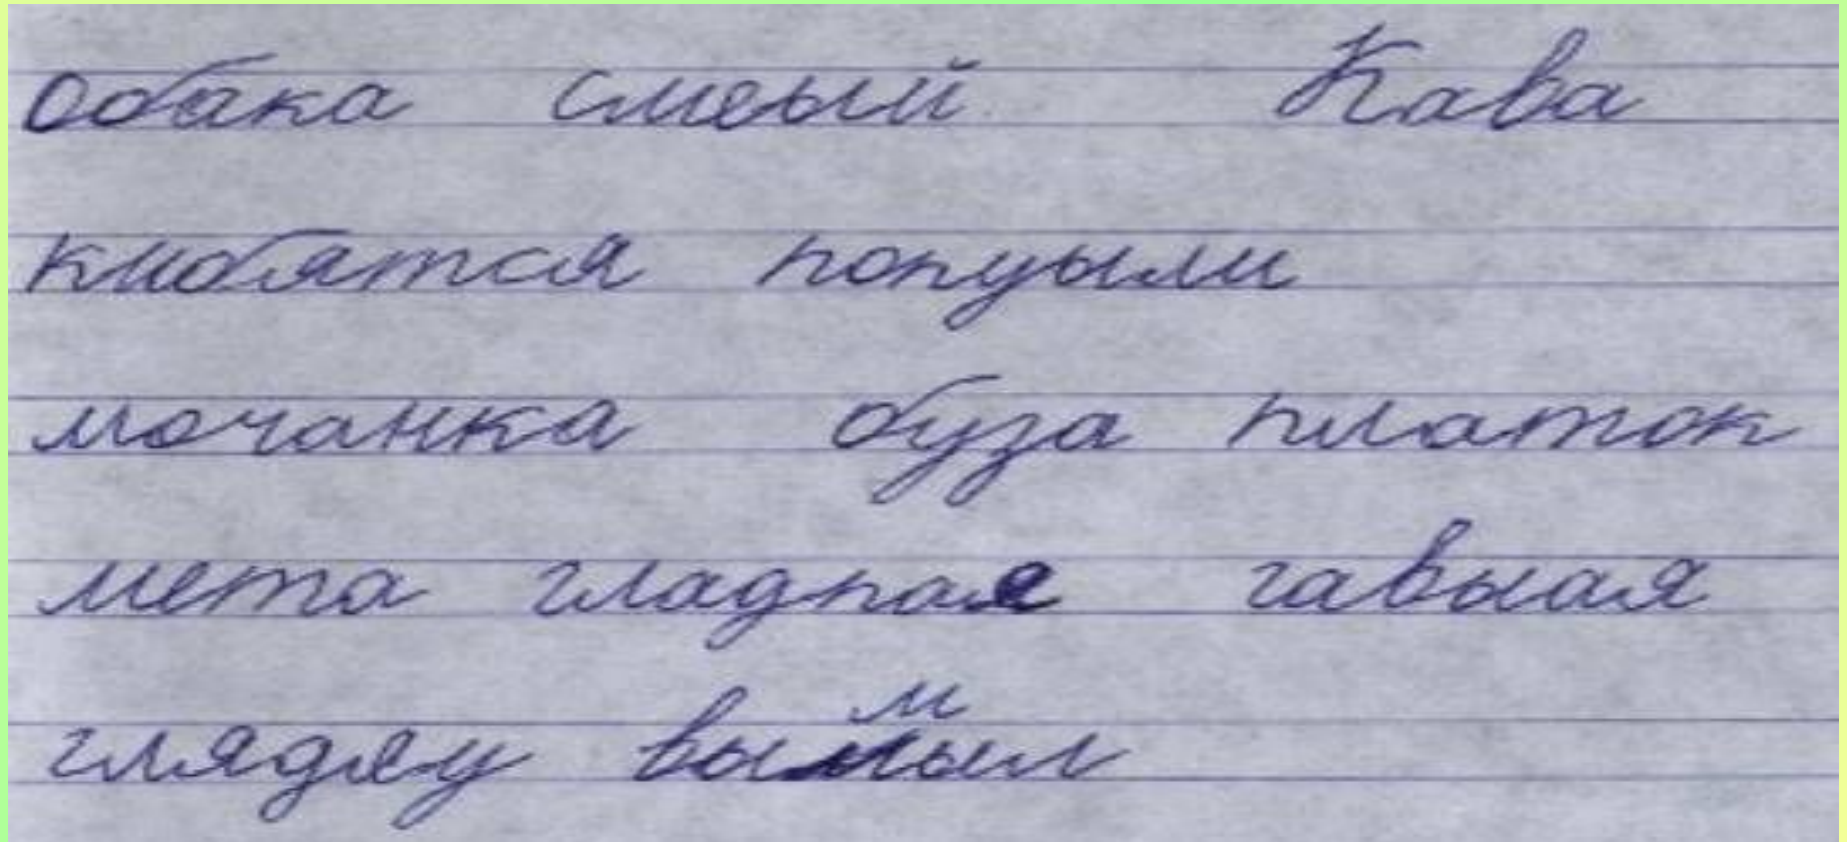 обака смеый Кава
кмобятся попуыли
мочанка буза платок
мета гладпае гавыая
глядяу вымыл м